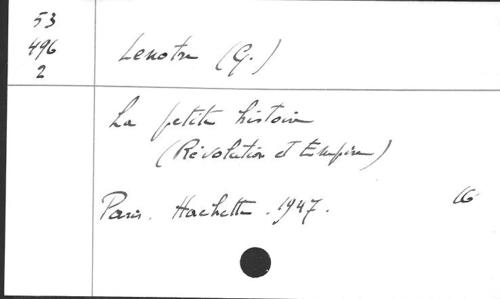 53
496
2
Lenotre (G.)
La petite histoire
(Révolution et Empire)
Paris. Hachette. 1947.